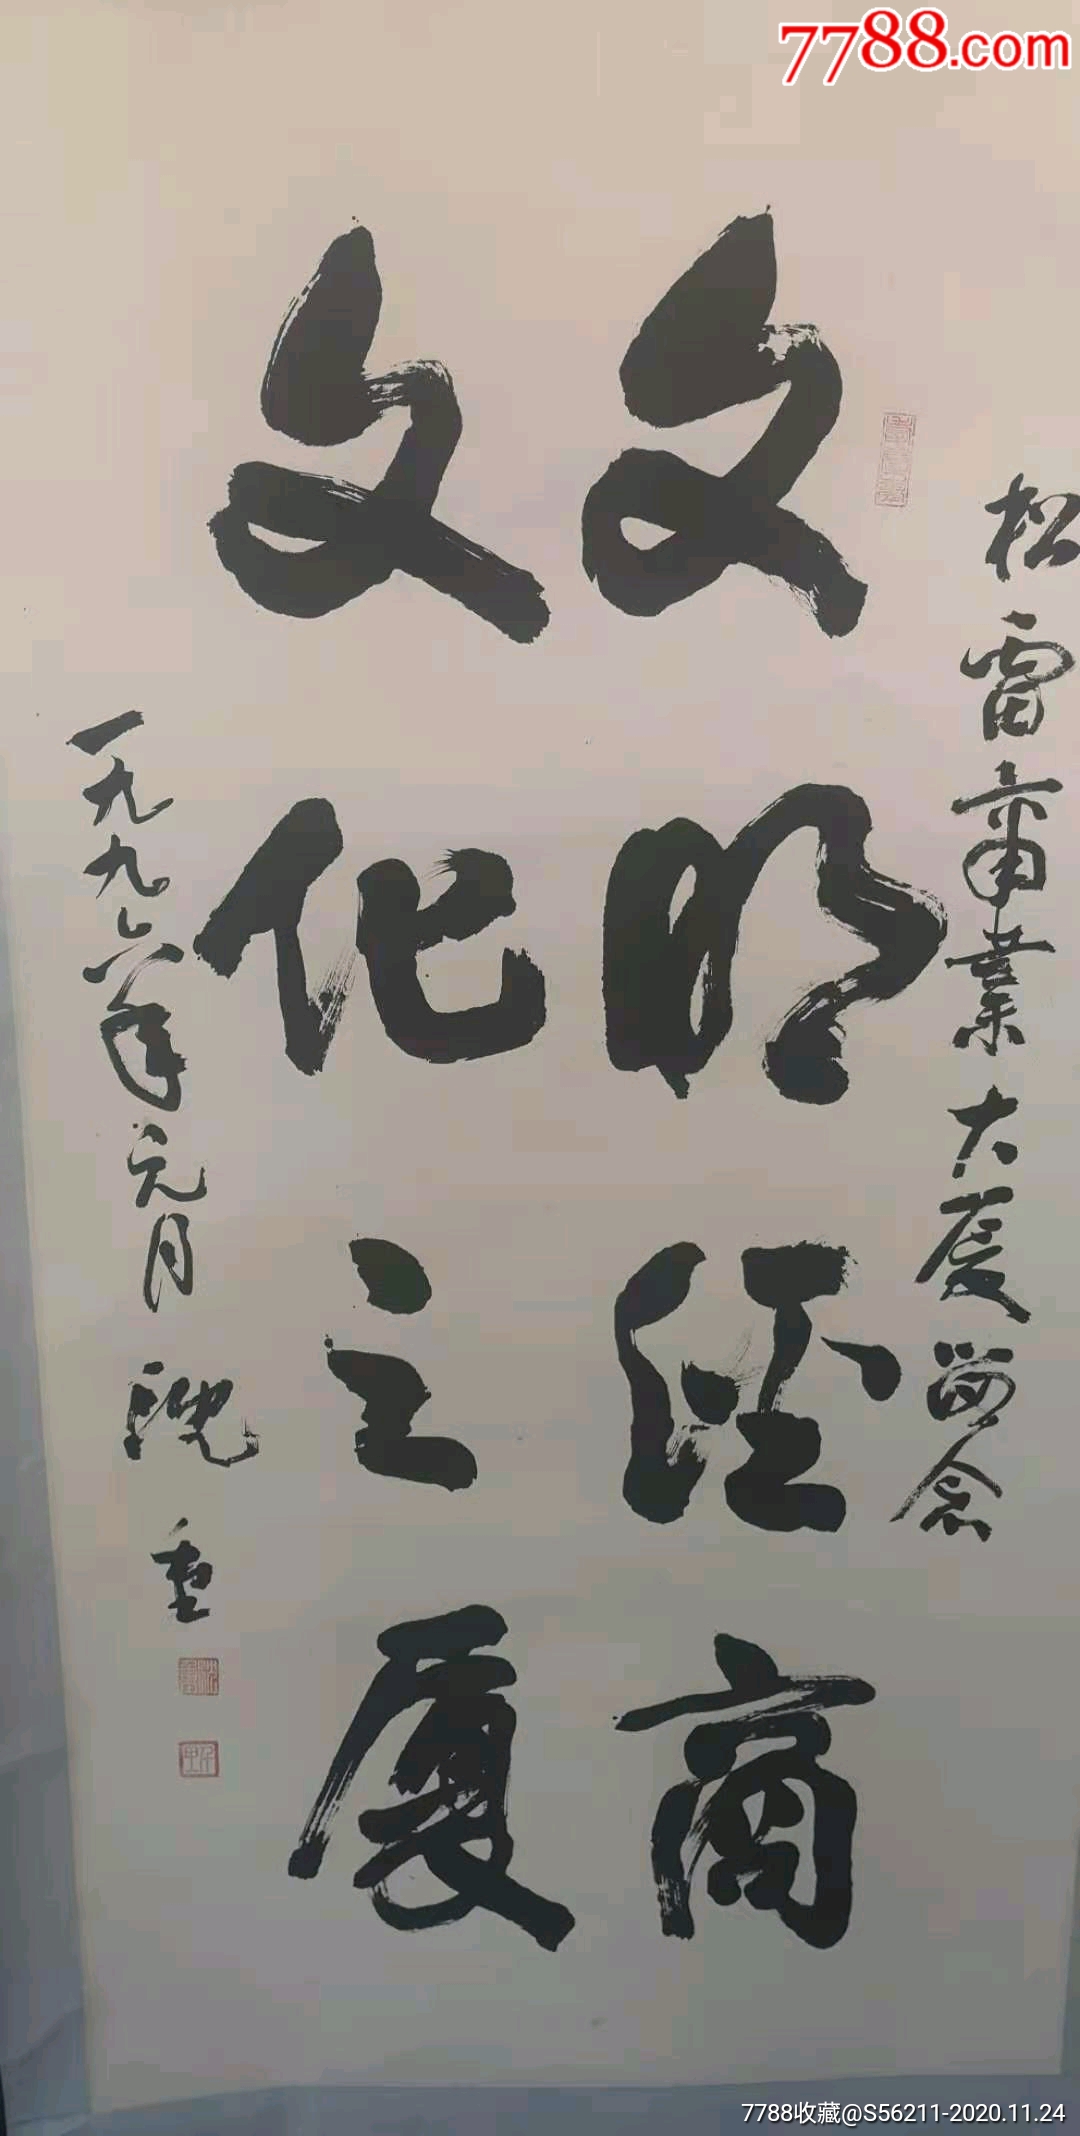 7788.com
松雷商業大厦留念
文明经商
文化之厦
一九九六年元月 沈重
7788收藏@S56211-2020.11.24